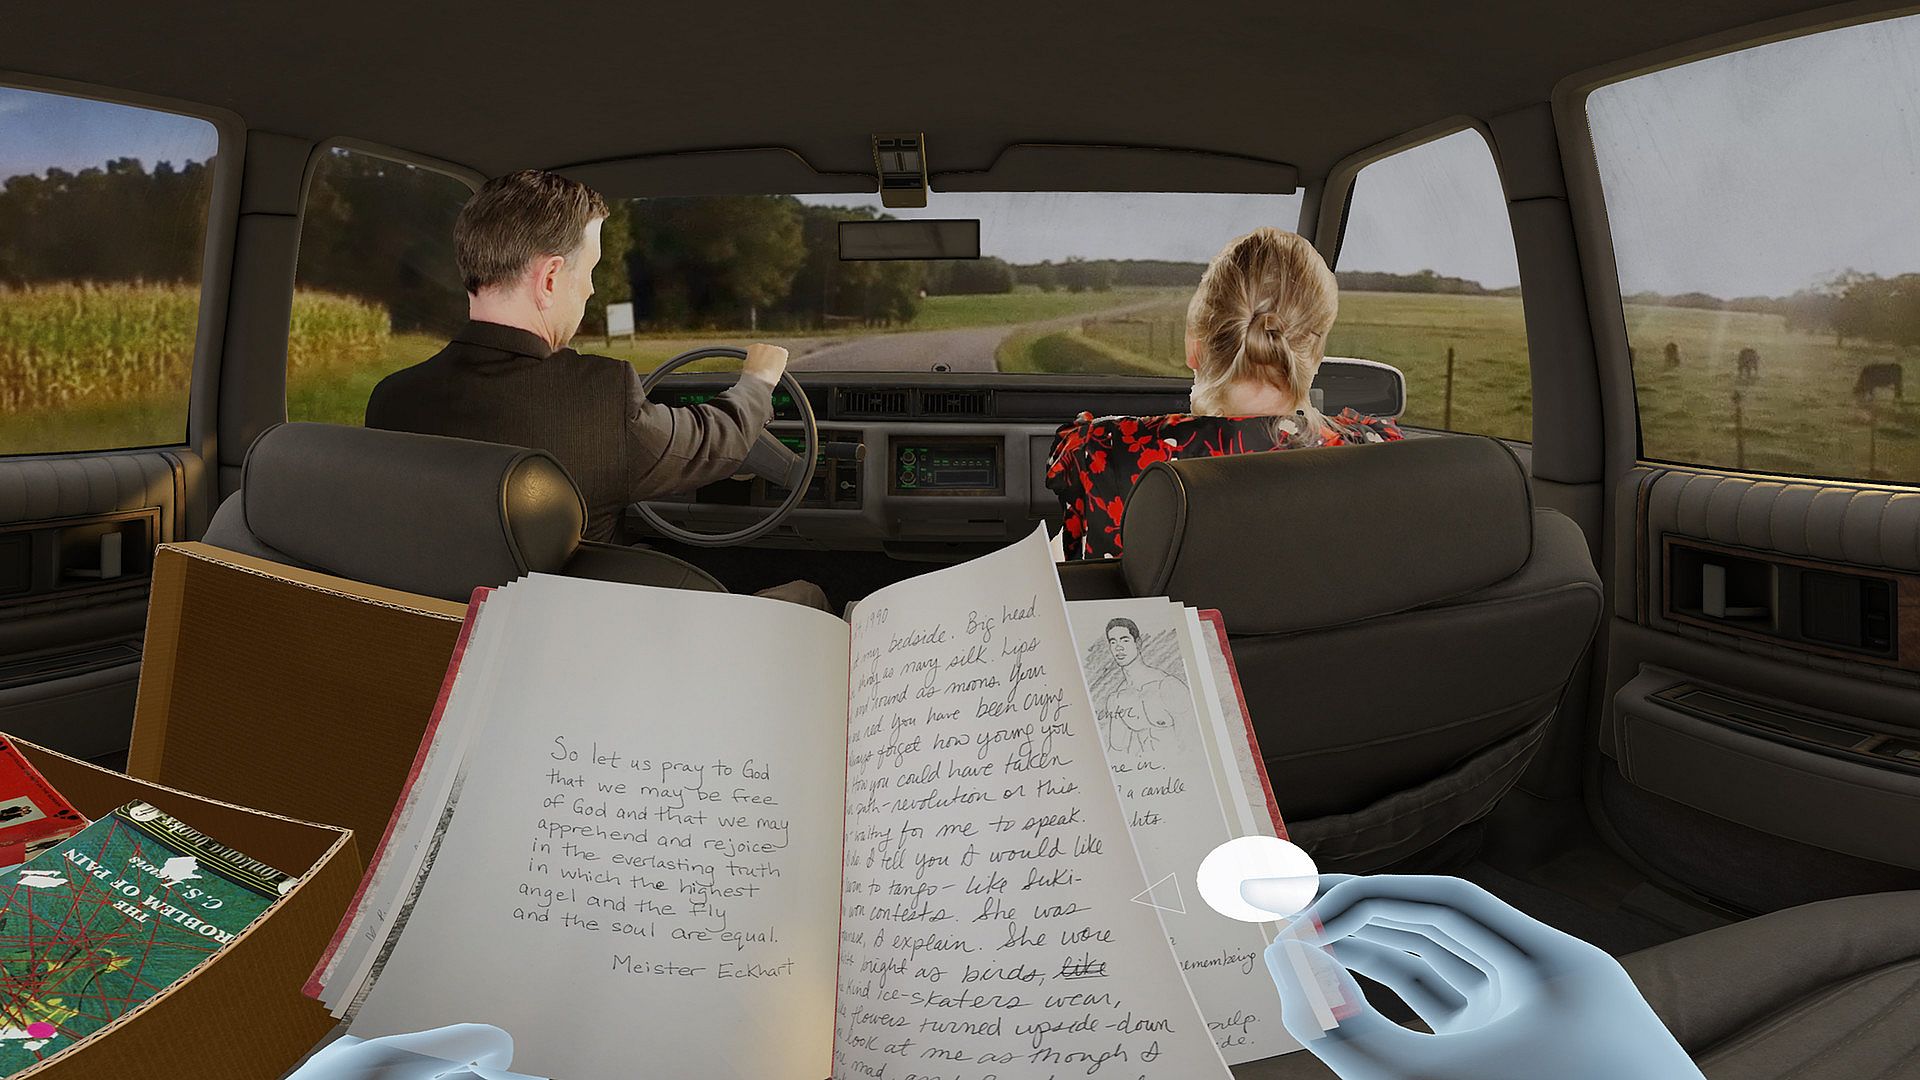 So let us pray to God
that we may be free
of God and that we may
apprehend and rejoice
in the everlasting truth
in which the highest
angel and the fly
and the soul are equal.
Meister Eckhart
1990
my bedside. Big head.
as navy silk. Lips
and round as moons. Your
red. You have been crying.
forget how young you
How you could have taken
path-revolution or this.
waiting for me to speak.
I tell you I would like
to tango - like Suki-
won contests. She was
I explain. She wore
bright as birds, like
kind ice-skaters wear,
flowers turned upside-down
look at me as though I
mad,
me in.
a candle
remembering
pulp.
THE
PROBLEM OF PAIN
C.S. Lewis
Fontana Books